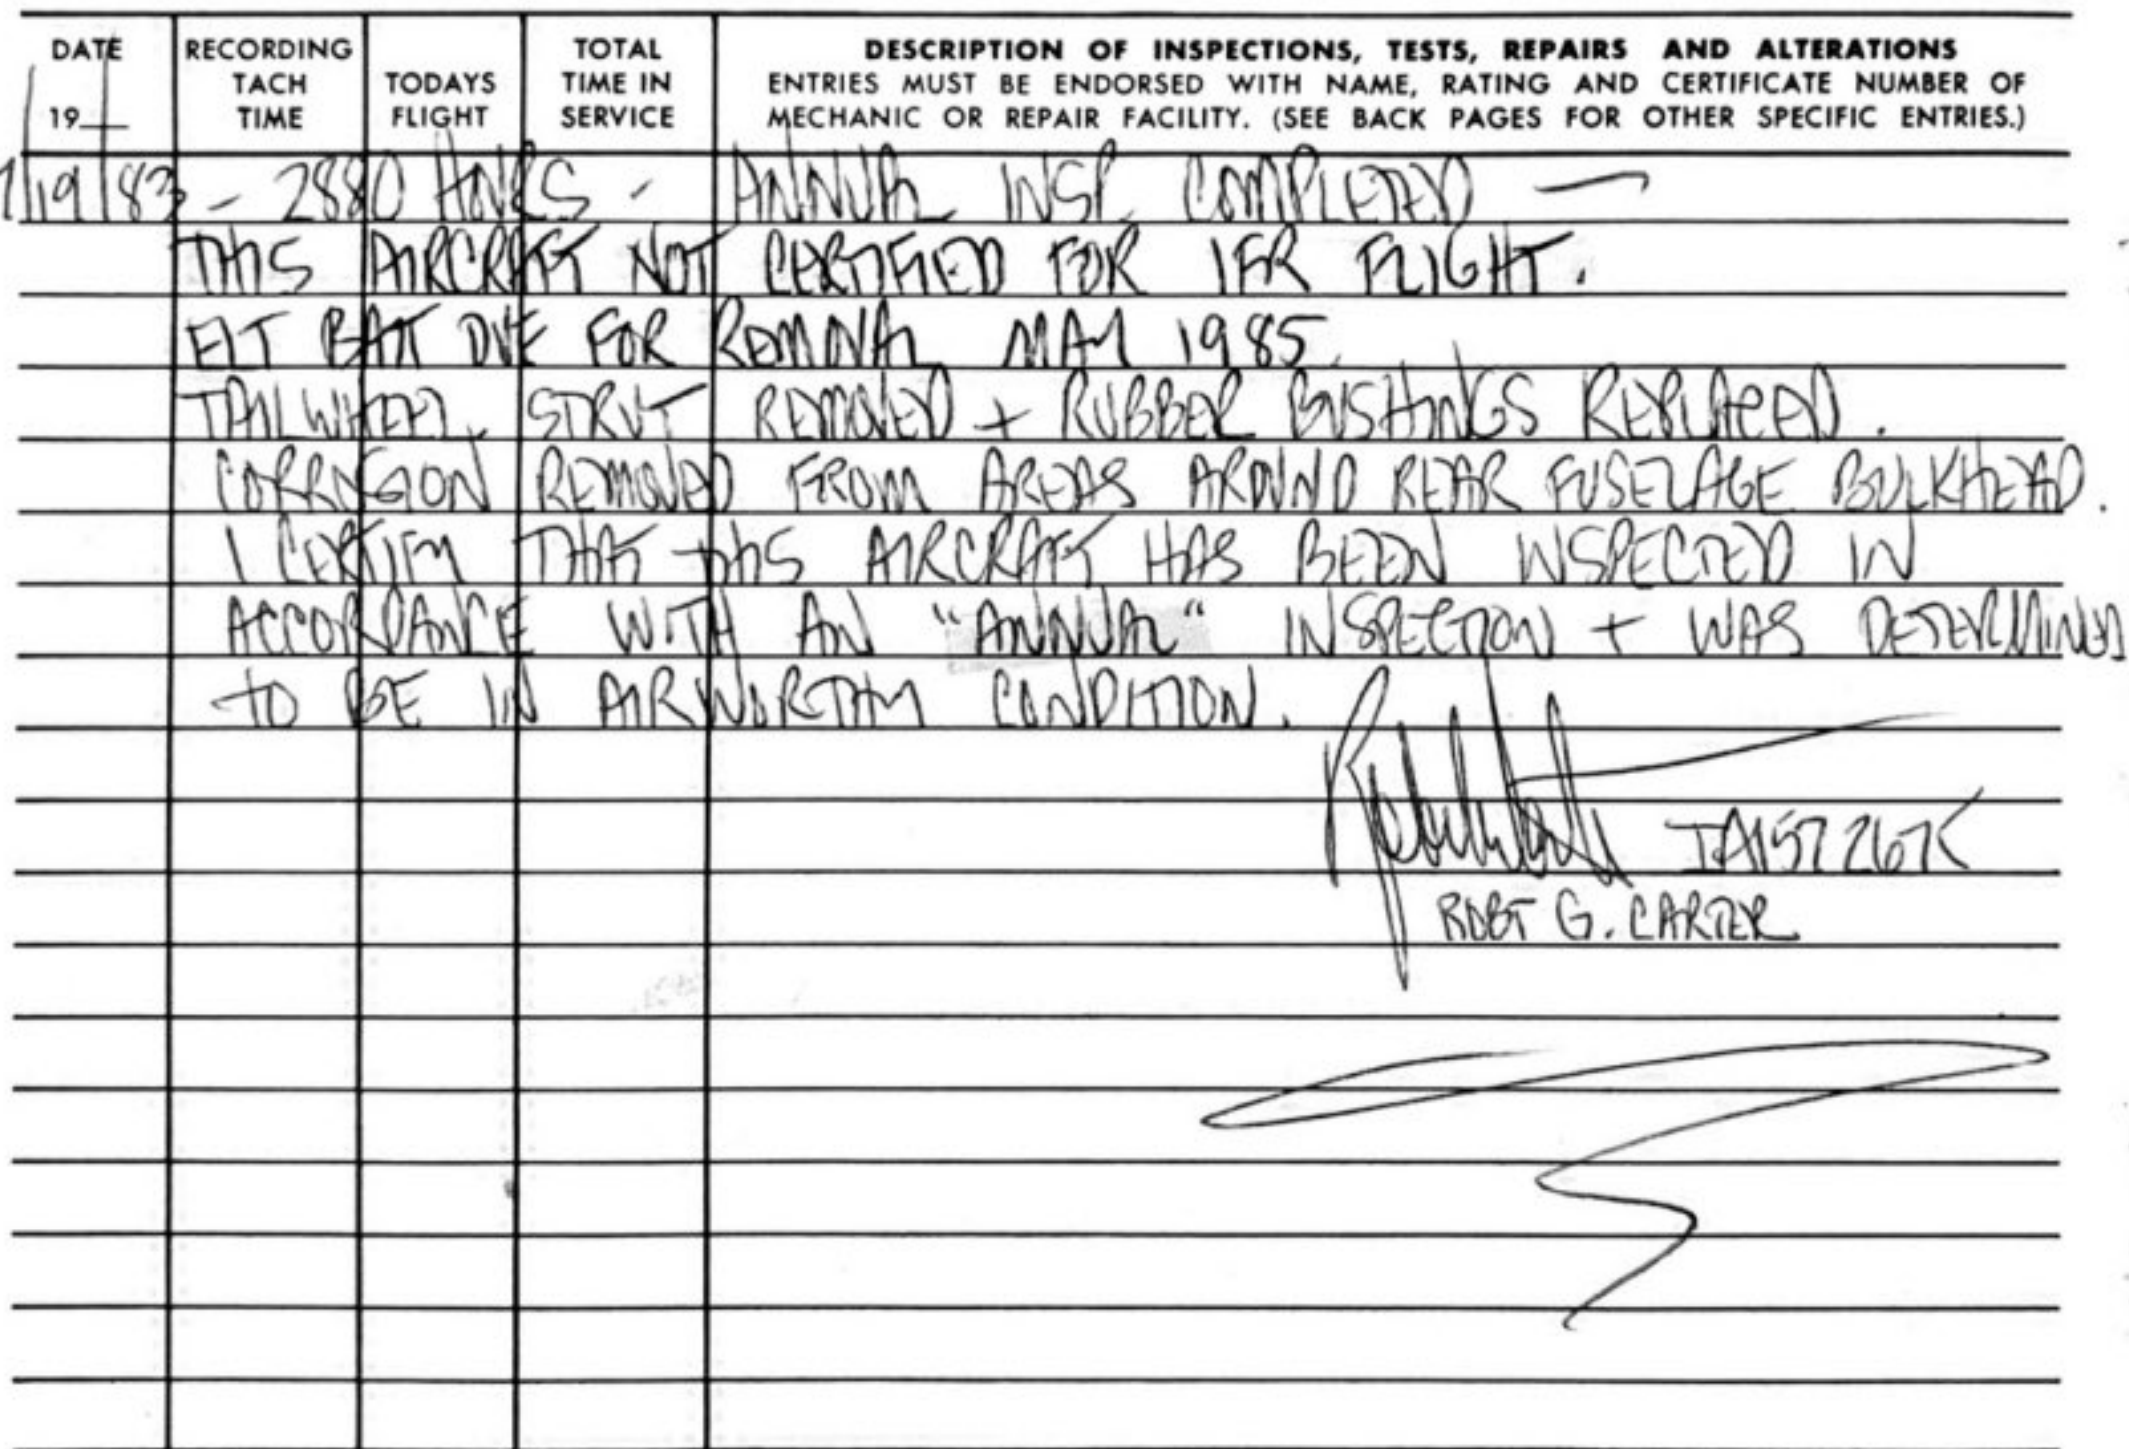 DATE
19__
RECORDING
TACH
TIME
TODAYS
FLIGHT
TOTAL
TIME IN
SERVICE
DESCRIPTION OF INSPECTIONS, TESTS, REPAIRS AND ALTERATIONS
ENTRIES MUST BE ENDORSED WITH NAME, RATING AND CERTIFICATE NUMBER OF
MECHANIC OR REPAIR FACILITY. (SEE BACK PAGES FOR OTHER SPECIFIC ENTRIES.)
/19/83 - 2880 HOURS - ANNUAL INSP. COMPLETED —
THIS AIRCRAFT NOT CERTIFIED FOR IFR FLIGHT.
ELT BATT DUE FOR REMOVAL MAY 1985.
TAILWHEEL STRUT REMOVED + RUBBER BUSHINGS REPLACED.
CORROSION REMOVED FROM AREAS AROUND REAR FUSELAGE BULKHEAD.
I CERTIFY THAT THIS AIRCRAFT HAS BEEN INSPECTED IN
ACCORDANCE WITH AN "ANNUAL" INSPECTION + WAS DETERMINED
TO BE IN AIRWORTHY CONDITION.
ROBT G. CARTER